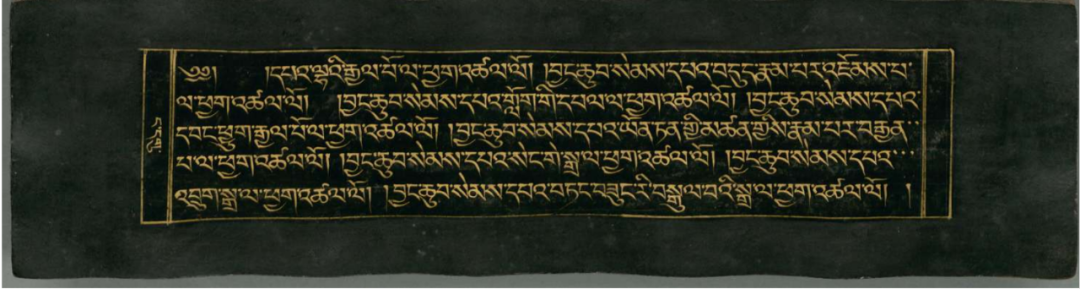 ༄༅། །དཔའ་ལྟའི་རྒྱལ་པོ་ལ་ཕྱག་འཚལ་ལོ། །བྱང་ཆུབ་སེམས་དཔའ་བདུད་རྣམ་པར་འཇོམས་པ་
ལ་ཕྱག་འཚལ་ལོ། །བྱང་ཆུབ་སེམས་དཔའ་གློག་གི་དཔལ་ལ་ཕྱག་འཚལ་ལོ། །བྱང་ཆུབ་སེམས་དཔའ་
དབང་ཕྱུག་རྒྱལ་པོ་ལ་ཕྱག་འཚལ་ལོ། །བྱང་ཆུབ་སེམས་དཔའ་ཡོན་ཏན་གྱི་མཚན་གྱིས་རྣམ་པར་བརྒྱན་
པ་ལ་ཕྱག་འཚལ་ལོ། །བྱང་ཆུབ་སེམས་དཔའ་སེང་གེ་སྒྲ་ལ་ཕྱག་འཚལ་ལོ། །བྱང་ཆུབ་སེམས་དཔའ་
འབྲུག་སྒྲ་ལ་ཕྱག་འཚལ་ལོ། །བྱང་ཆུབ་སེམས་དཔའ་བཏང་བཟུང་རི་བསྒུལ་བའི་སྒྲ་ལ་ཕྱག་འཚལ་ལོ། །